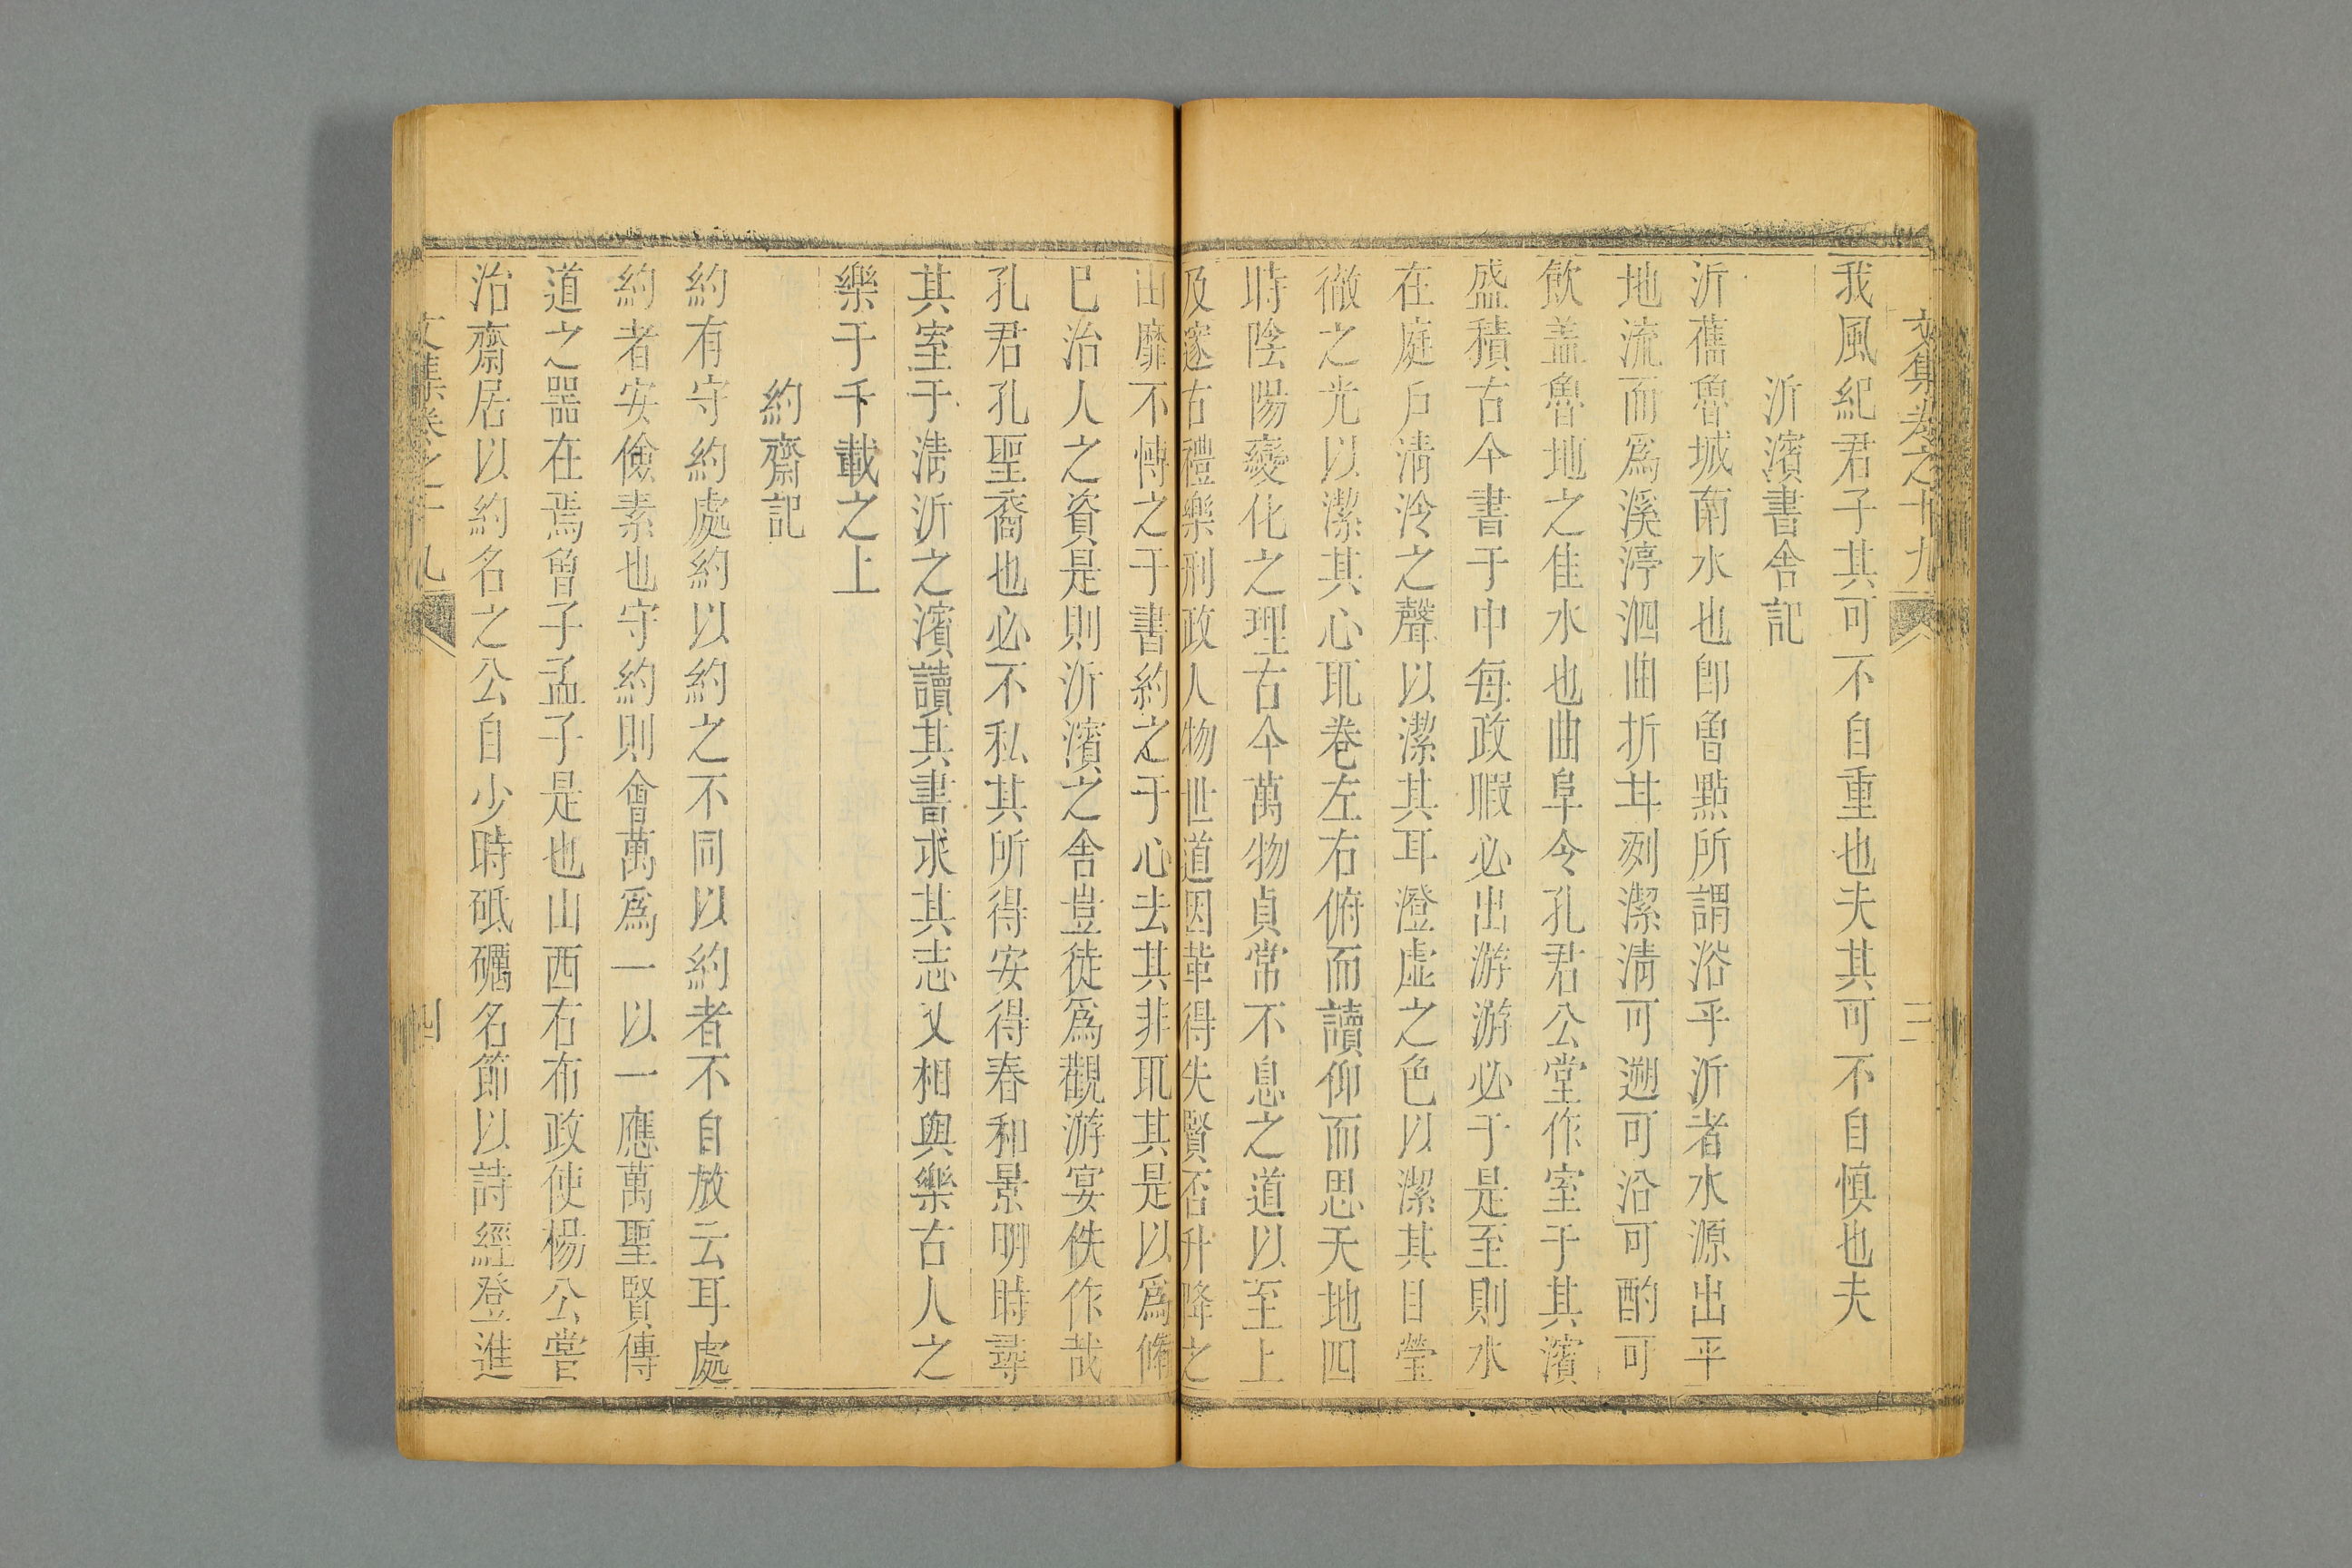 文集卷之十九
三
我風紀君子其可不自重也夫其可不自慎也夫
沂濱書舍記
沂舊魯城南水也卽曾點所謂浴乎沂者水源出平
地流而爲溪渟泗曲折甘冽潔淸可遡可沿可酌可
飮盖魯地之佳水也曲阜令孔君公堂作室于其濱
盛積古今書于中每政暇必出游游必于是至則水
在庭戶淸泠之聲以潔其耳澄虛之色以潔其目瑩
徹之光以潔其心耴巻左右俯而讀仰而思天地四
時陰陽變化之理古今萬物貞常不息之道以至上
及邃古禮樂刑政人物世道因革得失賢否升降之
山靡不慱之于書約之于心去其非耴其是以爲脩
巳治人之資是則沂濱之舍豈徒爲觀游宴佚作哉
孔君孔聖裔也必不私其所得安得春和景明時尋
其室于淸沂之濱讀其書求其志乂相與樂古人之
樂于千載之上
約齋記
約有守約處約以約之不同以約者不自放云耳處
約者安儉素也守約則會萬爲一以一應萬聖賢傳
道之噐在焉曾子孟子是也山西右布政使楊公甞
治齋居以約名之公自少時砥礪名節以詩經登進
文集卷之十九
四